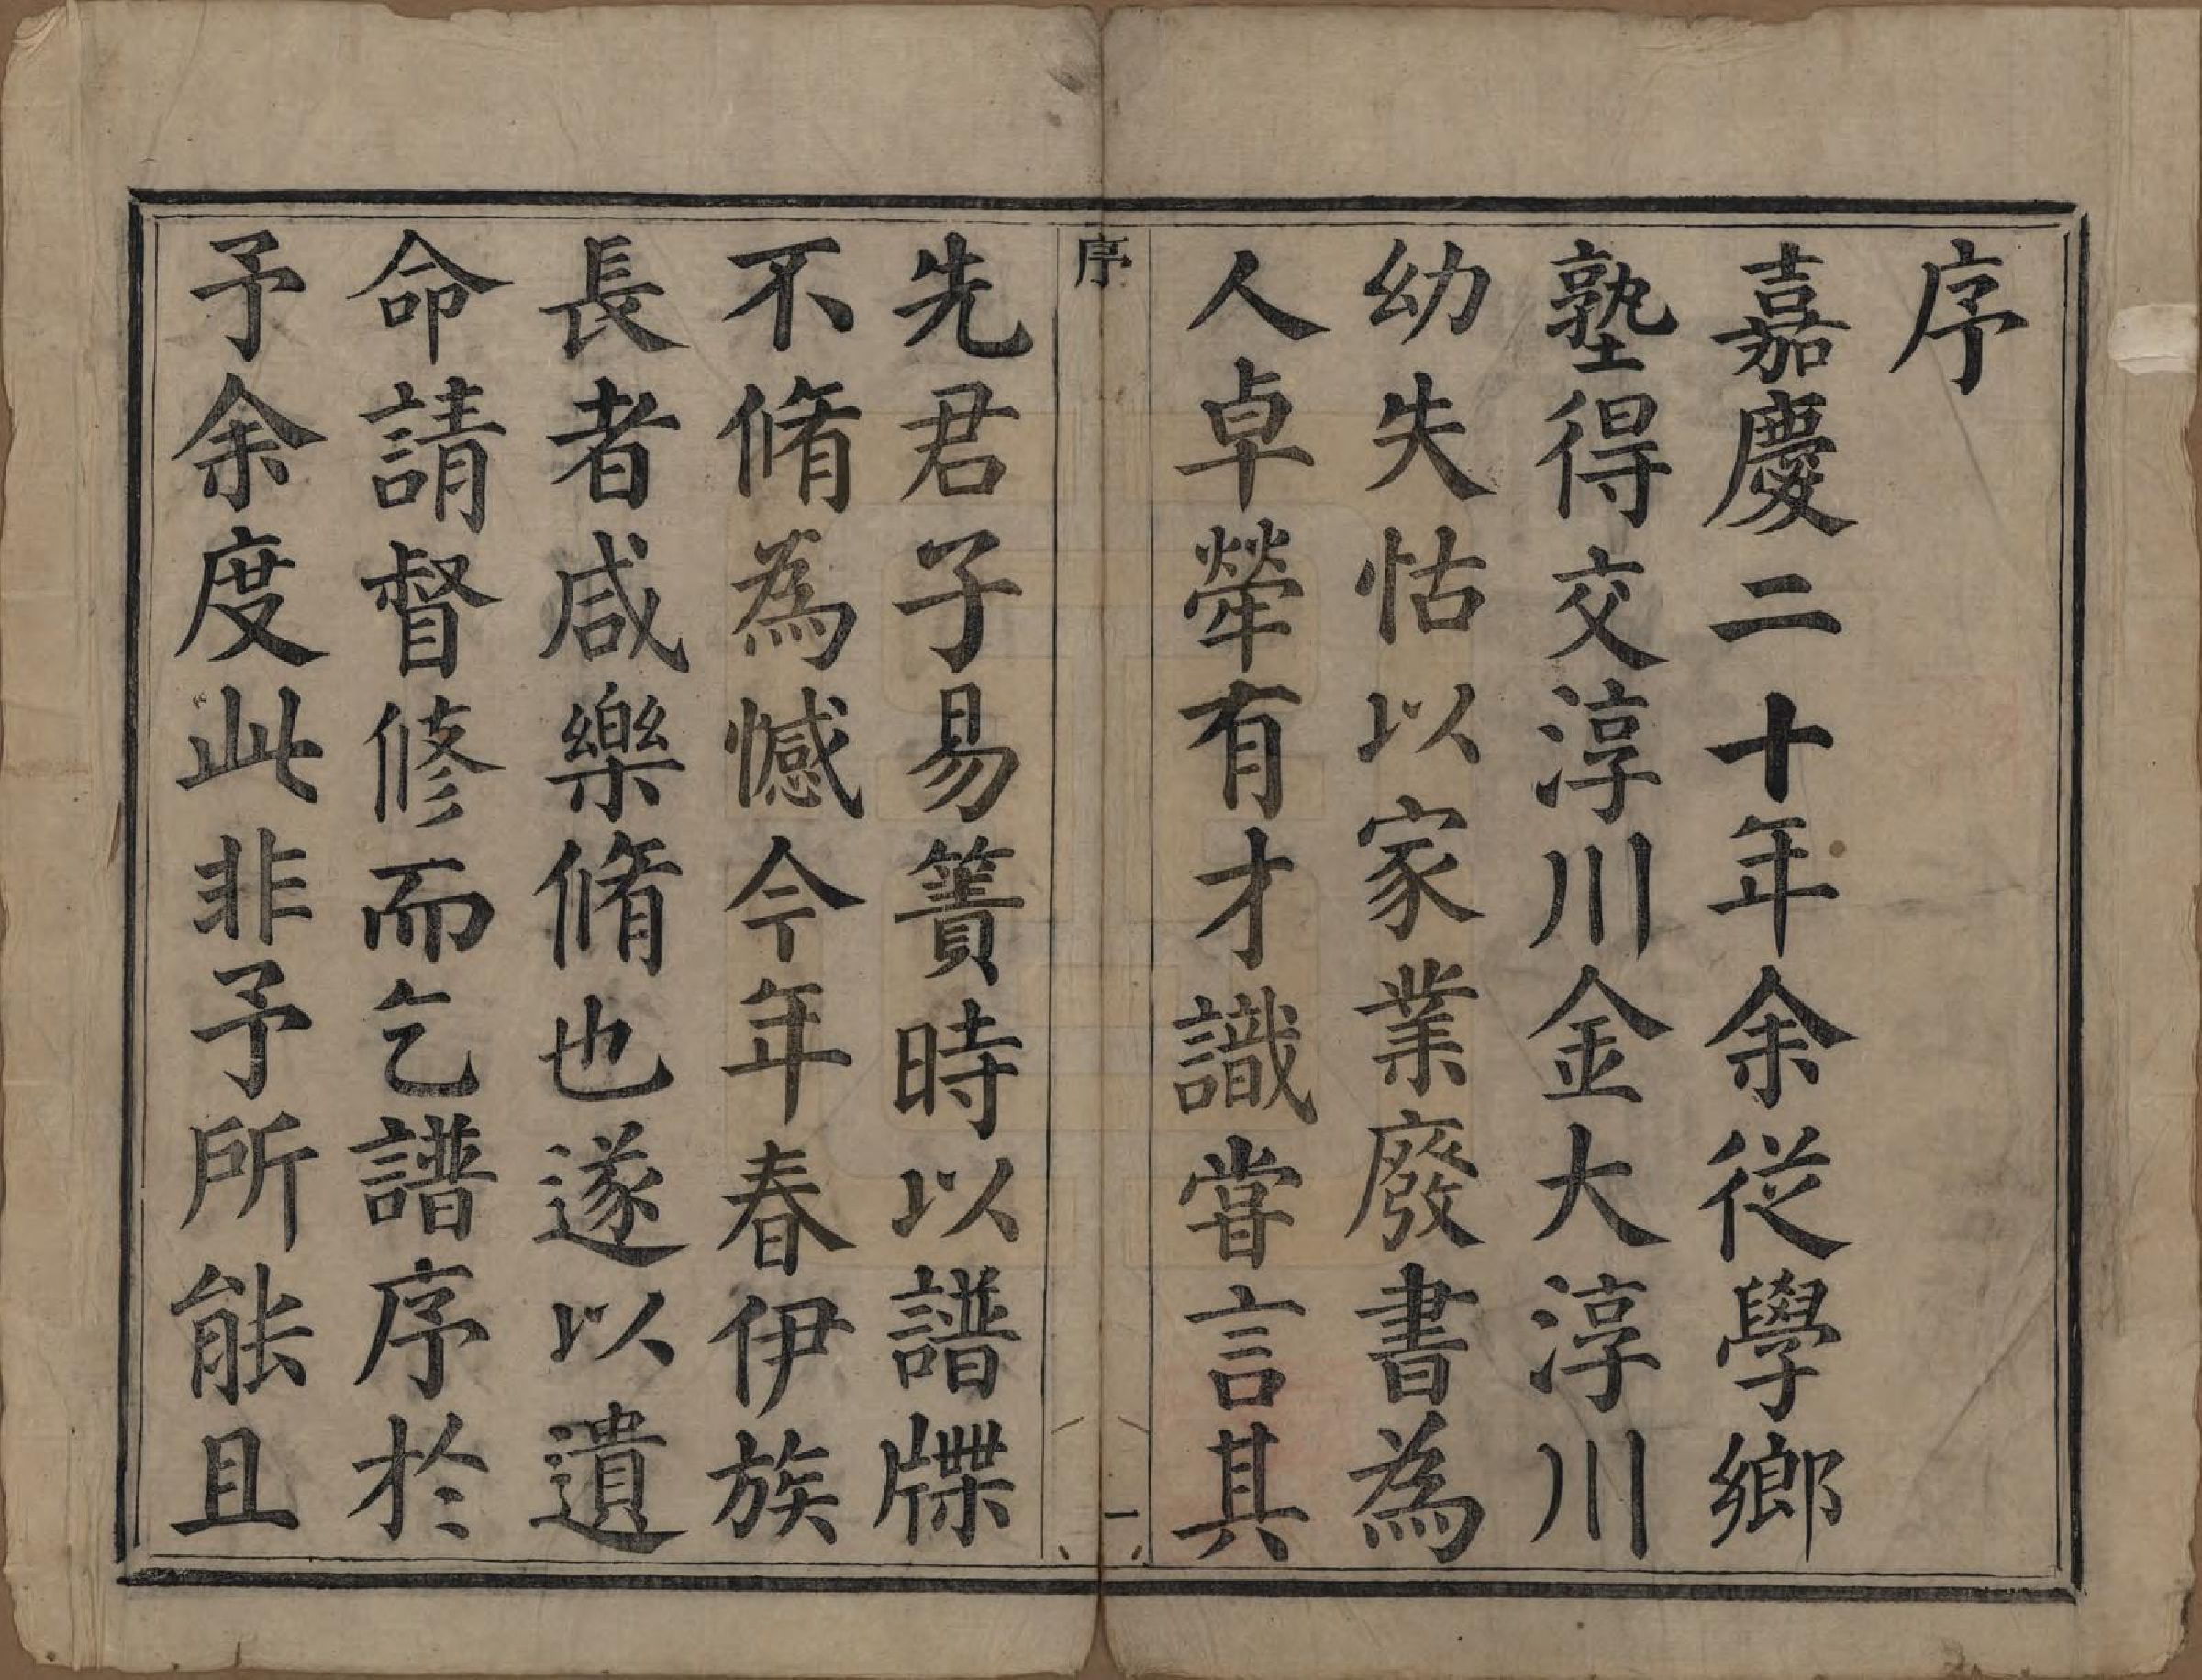 序
嘉慶二十年余従學鄉
塾得交淳川金大淳川
幼失怙以家業廢書為
人卓犖有才識嘗言其
序
一
先君子易簀時以譜牒
不脩為憾今年春伊族
長者咸樂脩也遂以遺
命請督修而乞譜序於
予余度此非予所能且